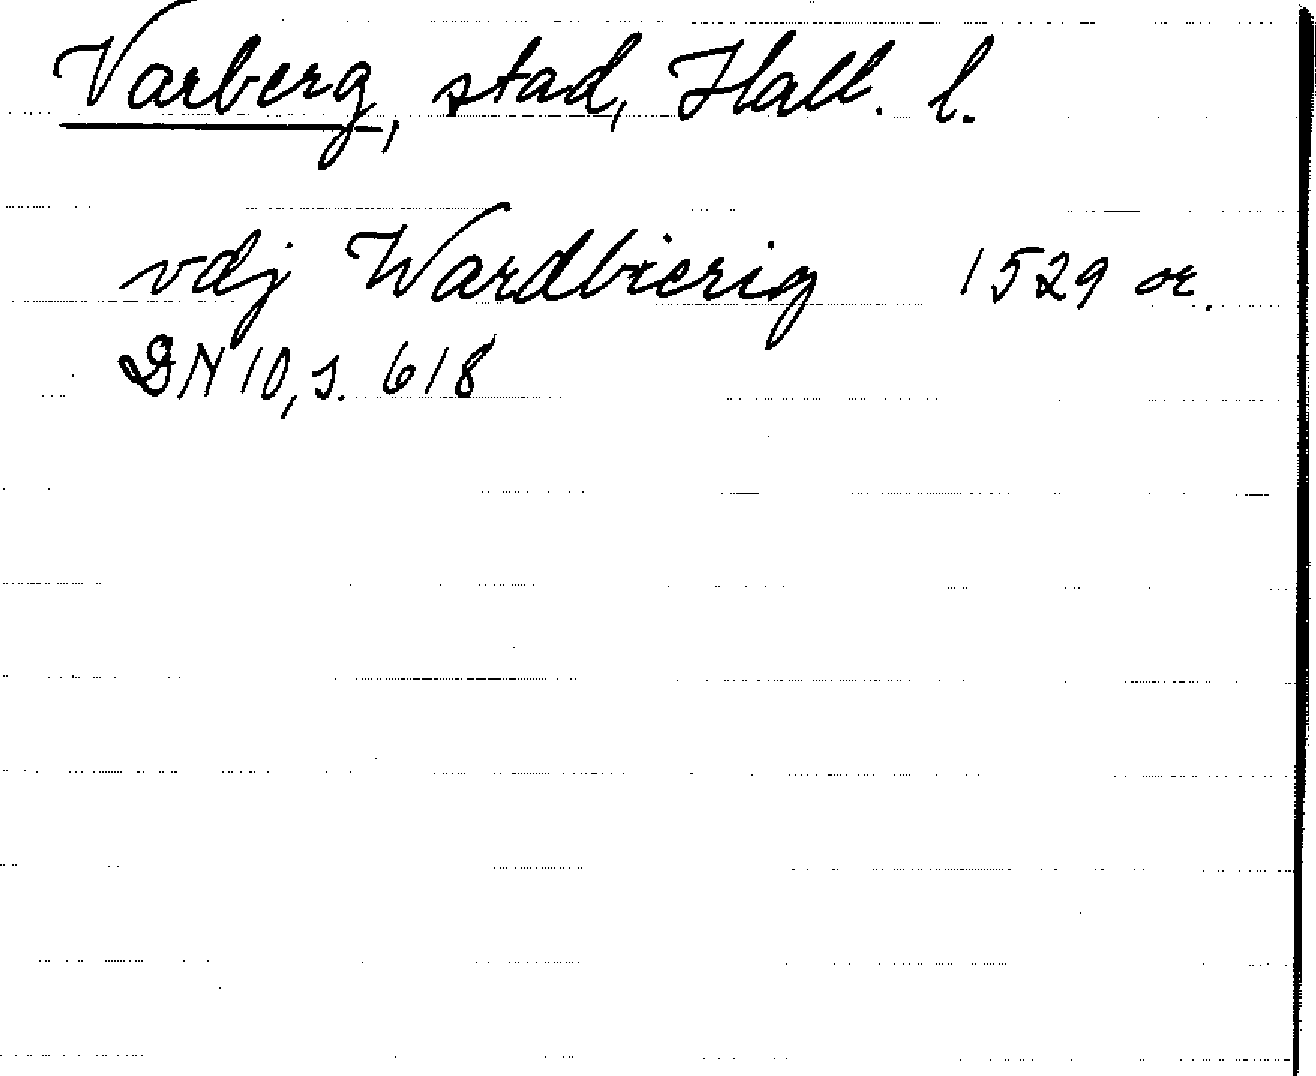 Varberg, stad, Hall. l.
vdj Wardbierig 1529 or.
DN 10, s. 618